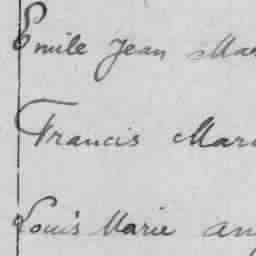 Emile Jean Ma
Francis Mar
Louis Marie an